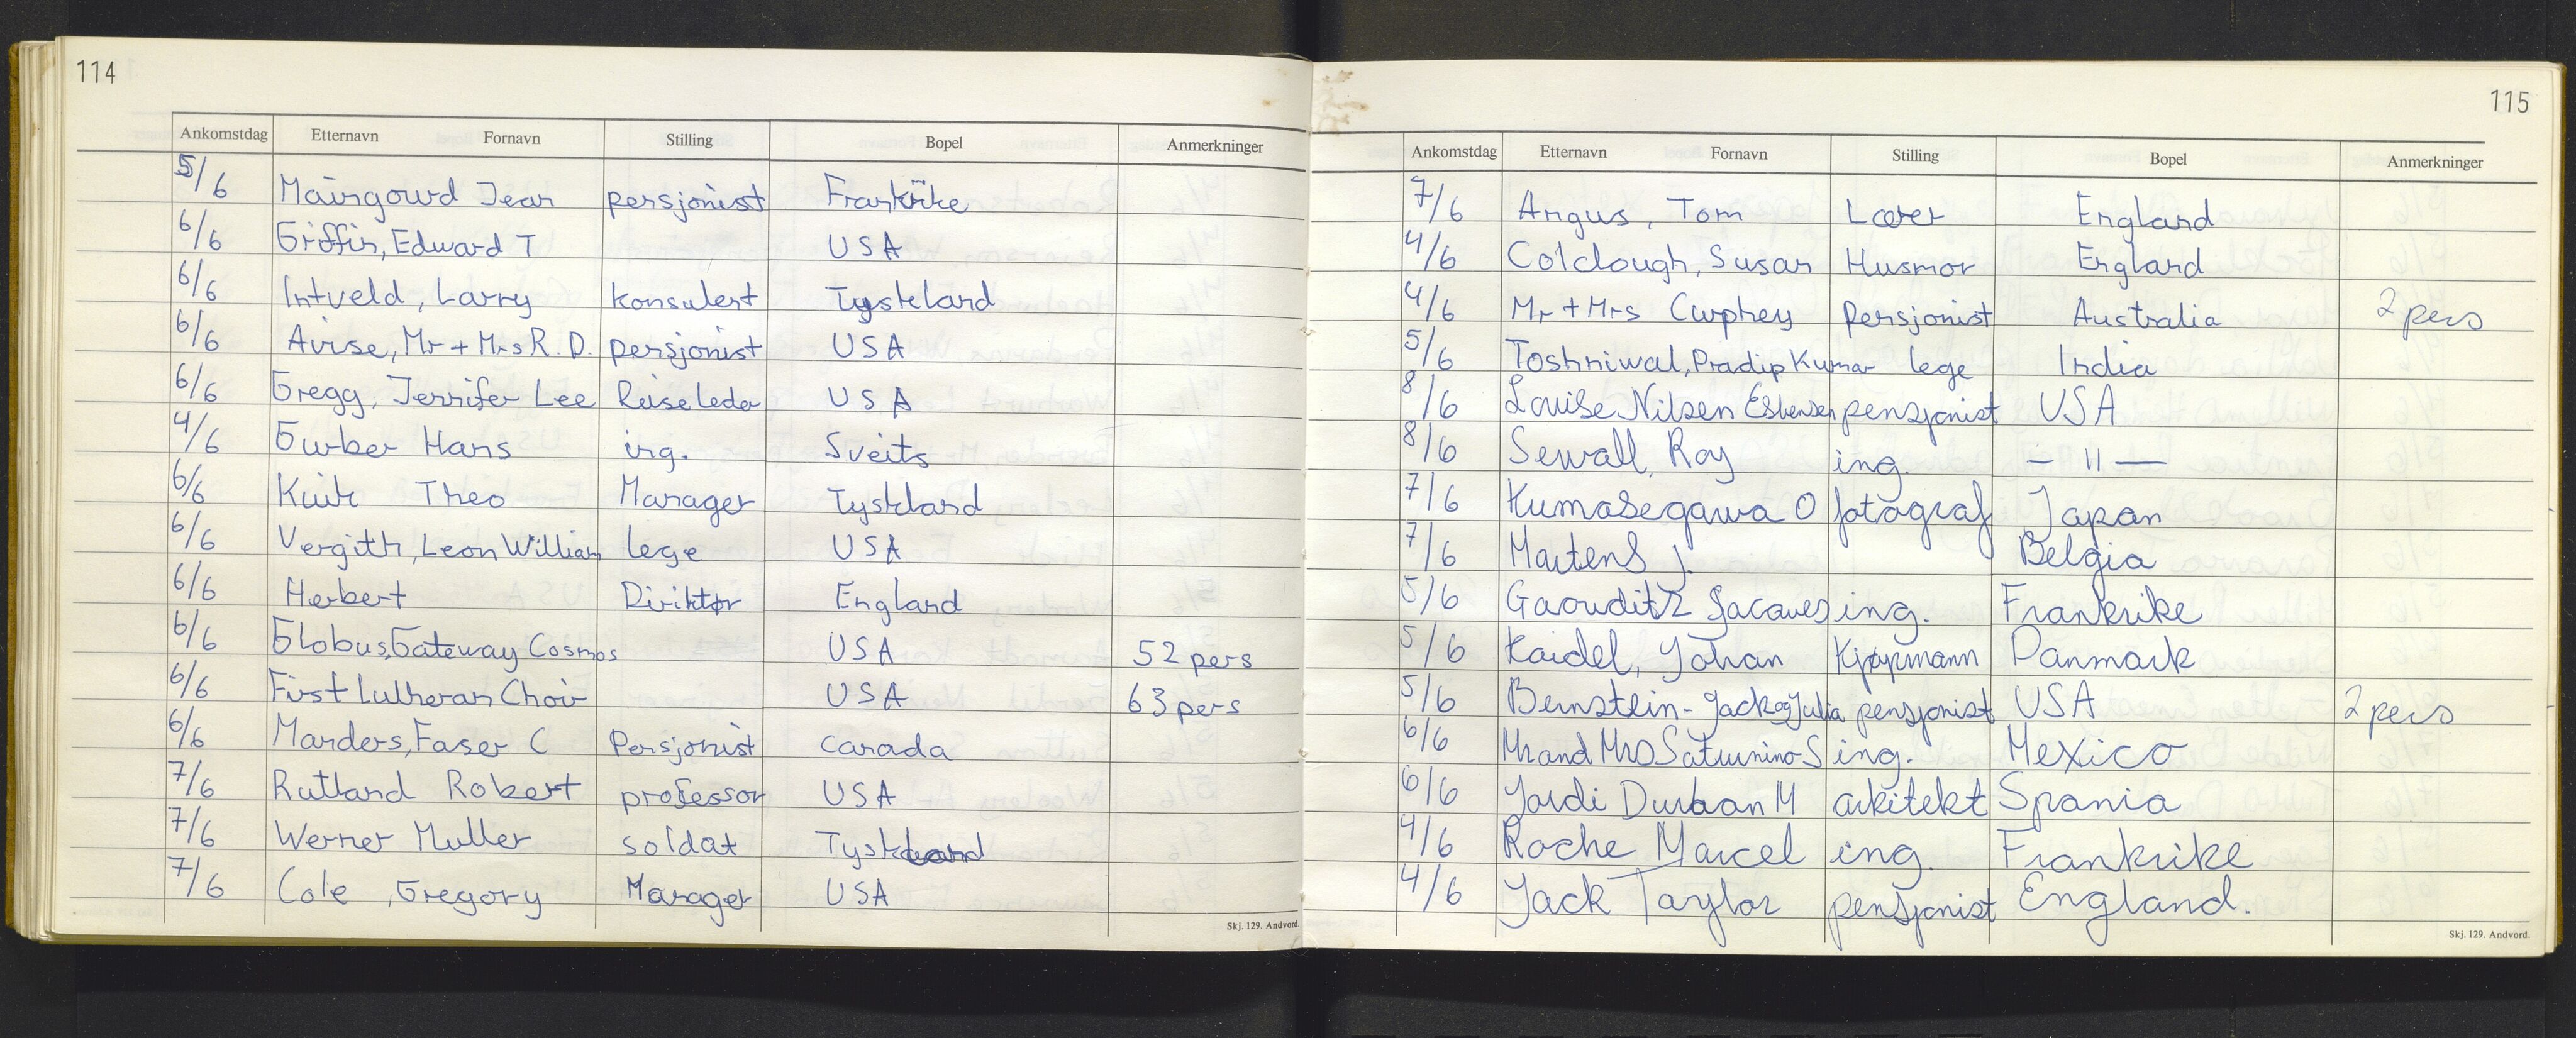 114
Ankomstdag Etternavn Fornavn Stilling Bopel Anmerkninger
5/6 Maingourd Jean pensjonist Frankrike
6/6 Griffin, Edward T USA
6/6 Intveld, Larry Konsulent Tyskland
6/6 Avise, Mr + Mrs R. D. pensjonist USA
6/6 Gregg, Jennifer Lee Reiseleder USA
4/6 Gurber Hans ing. Sveits
6/6 Theo Manager Tyskland
6/6 Vergith, Leon William lege USA
6/6 Herbert Diriktør England
6/6 Globus, Gateway Cosmos USA 52 pers
6/6 First Lutheran Choir USA 63 pers
6/6 Manders, Faser C Pensjonist Canada
7/6 Rutland Robert professor USA
7/6 Werner Muller soldat Tyskland
7/6 Cole, Gregory Manager USA
Skj. 129. Andvord.
115
Ankomstdag Etternavn Fornavn Stilling Bopel Anmerkninger
7/6 Angus, Tom Lærer England
4/6 Colclough, Susan Husmor England
4/6 Mr + Mrs Curphey Pensjonist Australia 2 pers
5/6 Toshniwal, Pradip Kumar lege India
8/6 Louise Nilsen Esbensen pensjonist USA
8/6 Sewall, Roy ing. — 11 —
7/6 Kumasegawa O fotograf Japan
7/6 Martens J. Belgia
5/6 Gaouditz Jacques ing. Frankrike
5/6 Kaidel, Johan Kjøpmann Danmark
5/6 Bernstein - Jack og Julia pensjonist USA 2 pers
6/6 Mr and Mrs Saturnino S ing. Mexico
6/6 Jordi Durban M arkitekt Spania
4/6 Roche Marcel ing. Frankrike
4/6 Jack Taylor pensjonist England.
Skj. 129. Andvord.